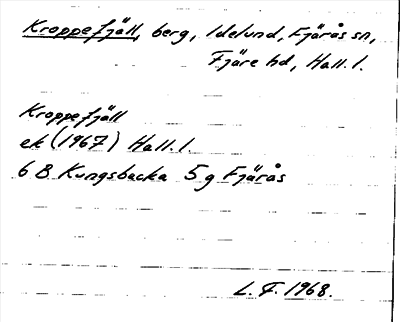 Kroppefjäll, berg, Idelund, Fjärås sn,
Fjäre hd, Hall. l.
Kroppefjäll
ek (1967) Hall. l.
6 B Kungsbacka 5 g Fjärås
L. F. 1968.